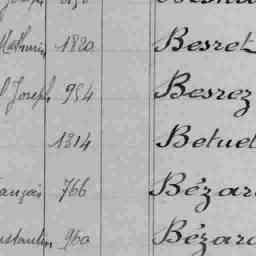 Mathurin 1820 Besret
Joseph 954 Besrez
1314 Betuel
François 766 Bézard
Constantin 960 Bézard